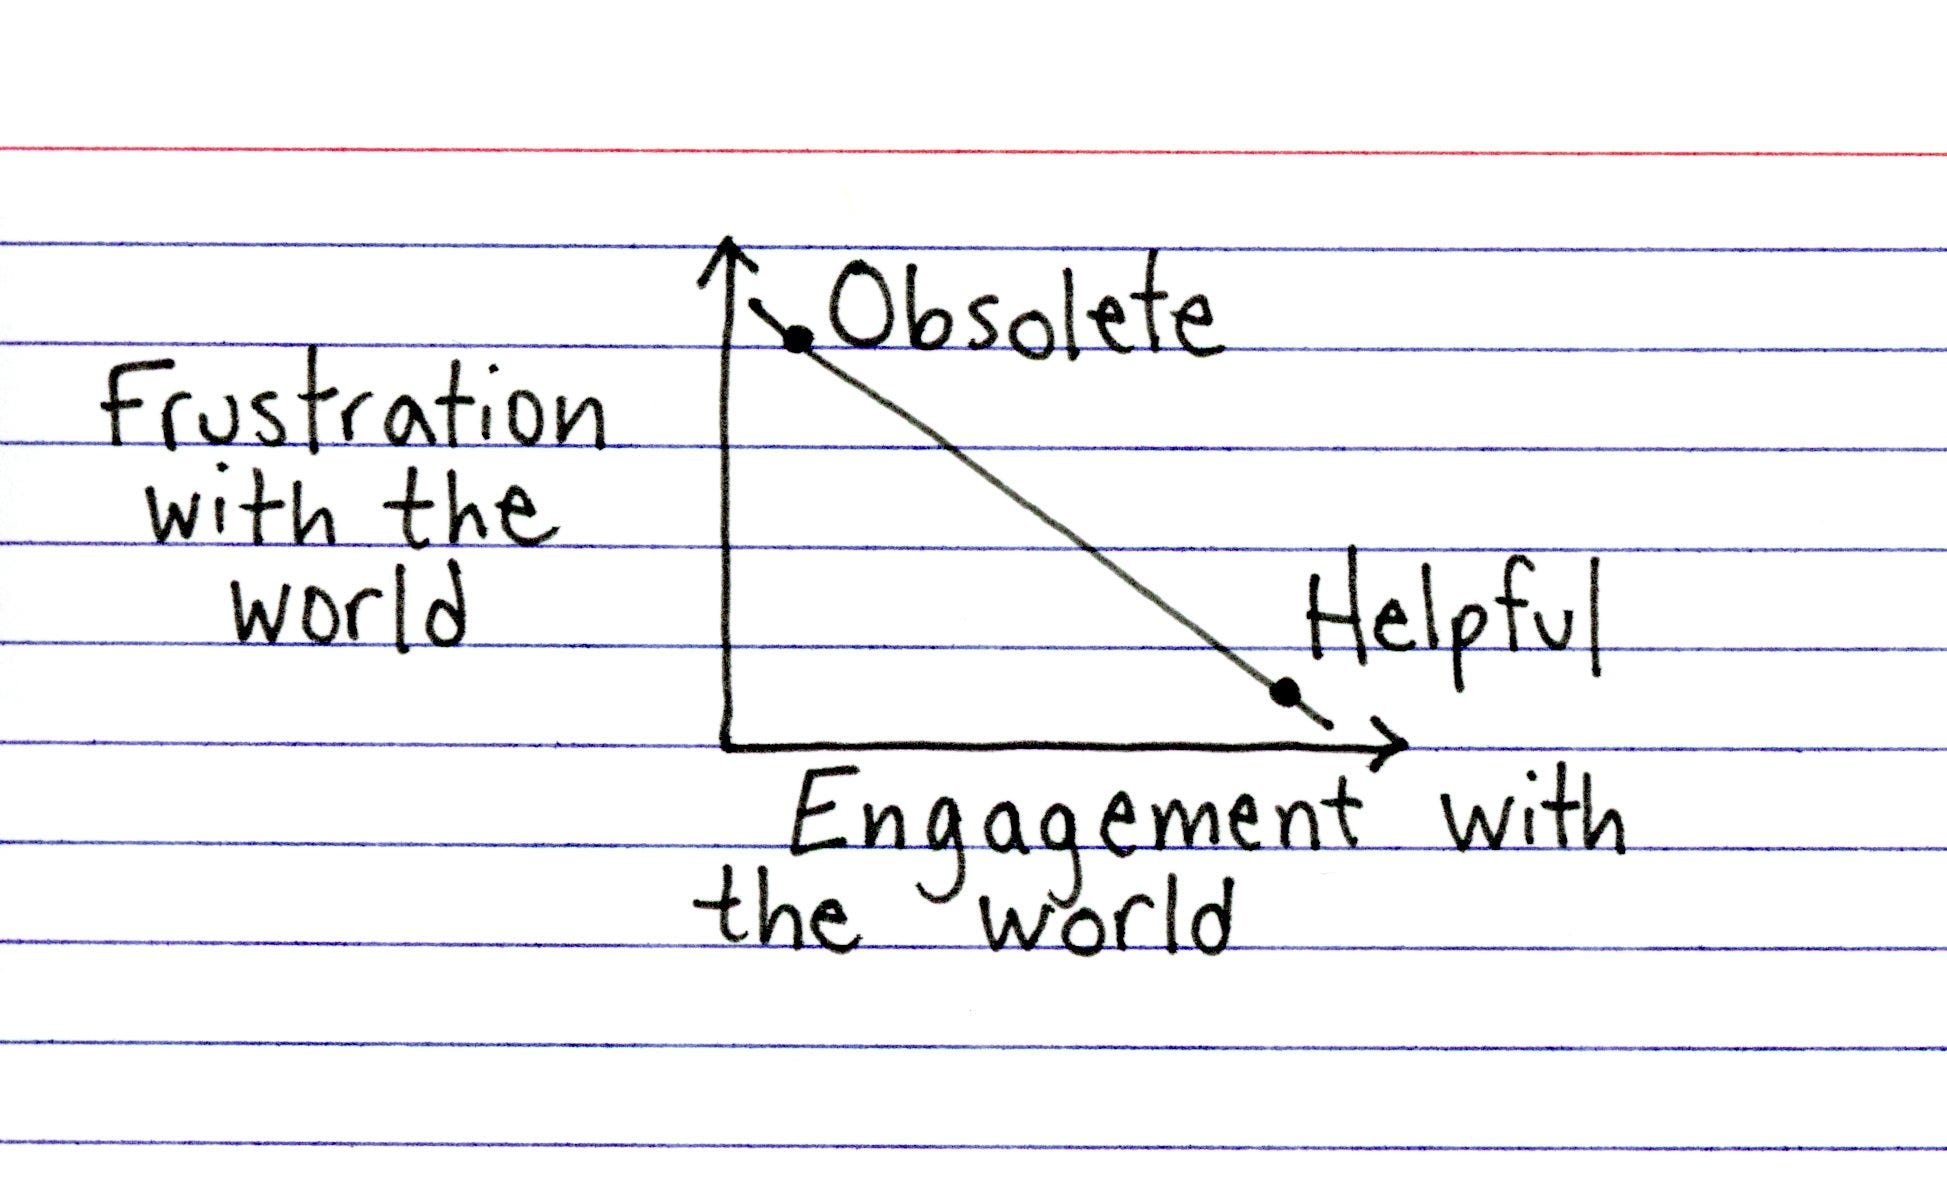 Obsolete
Frustration
with the
world
Helpful
Engagement with
the world